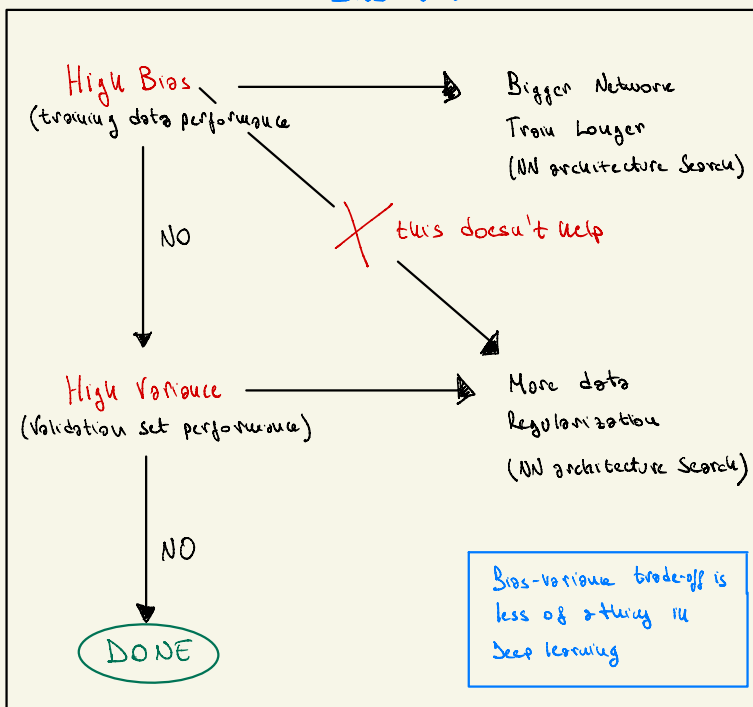 High Bias
(training data performance
Bigger Network
Train Longer
(NN architecture Search)
NO
this doesn't help
High Variance
(Validation set performance)
More data
Regularization
(NN architecture Search)
NO
DONE
Bias-variance trade-off is
less of a thing in
Deep learning